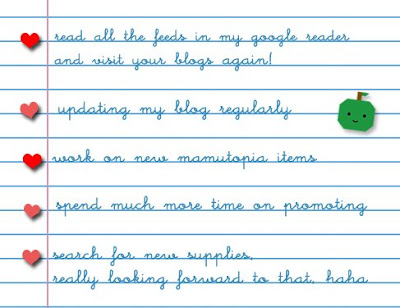 read all the feeds in my google reader
and visit your blogs again!
updating my blog regularly
work on new mamutopia items
spend much more time on promoting
search for new supplies,
really looking forward to that, haha